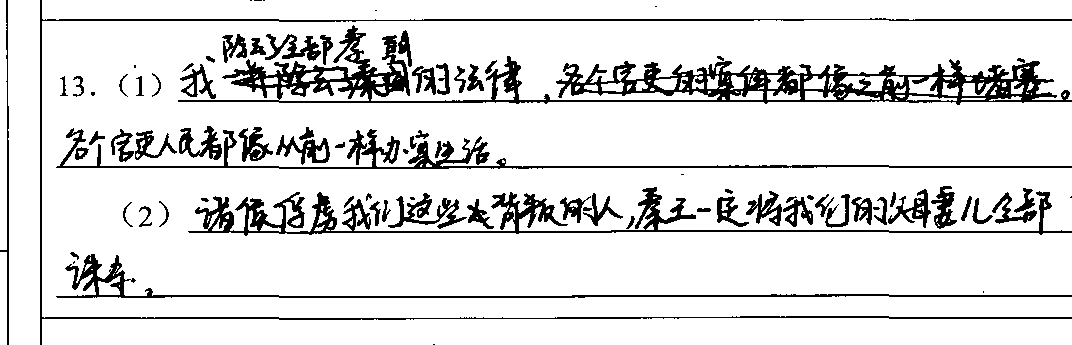 除去了全部秦朝
13.（1）我的法律，
各个官吏人民都像从前一样办案生活。
（2）诸侯俘虏我们这些背叛的人，秦王一定将我们的父母妻儿全部
诛杀。